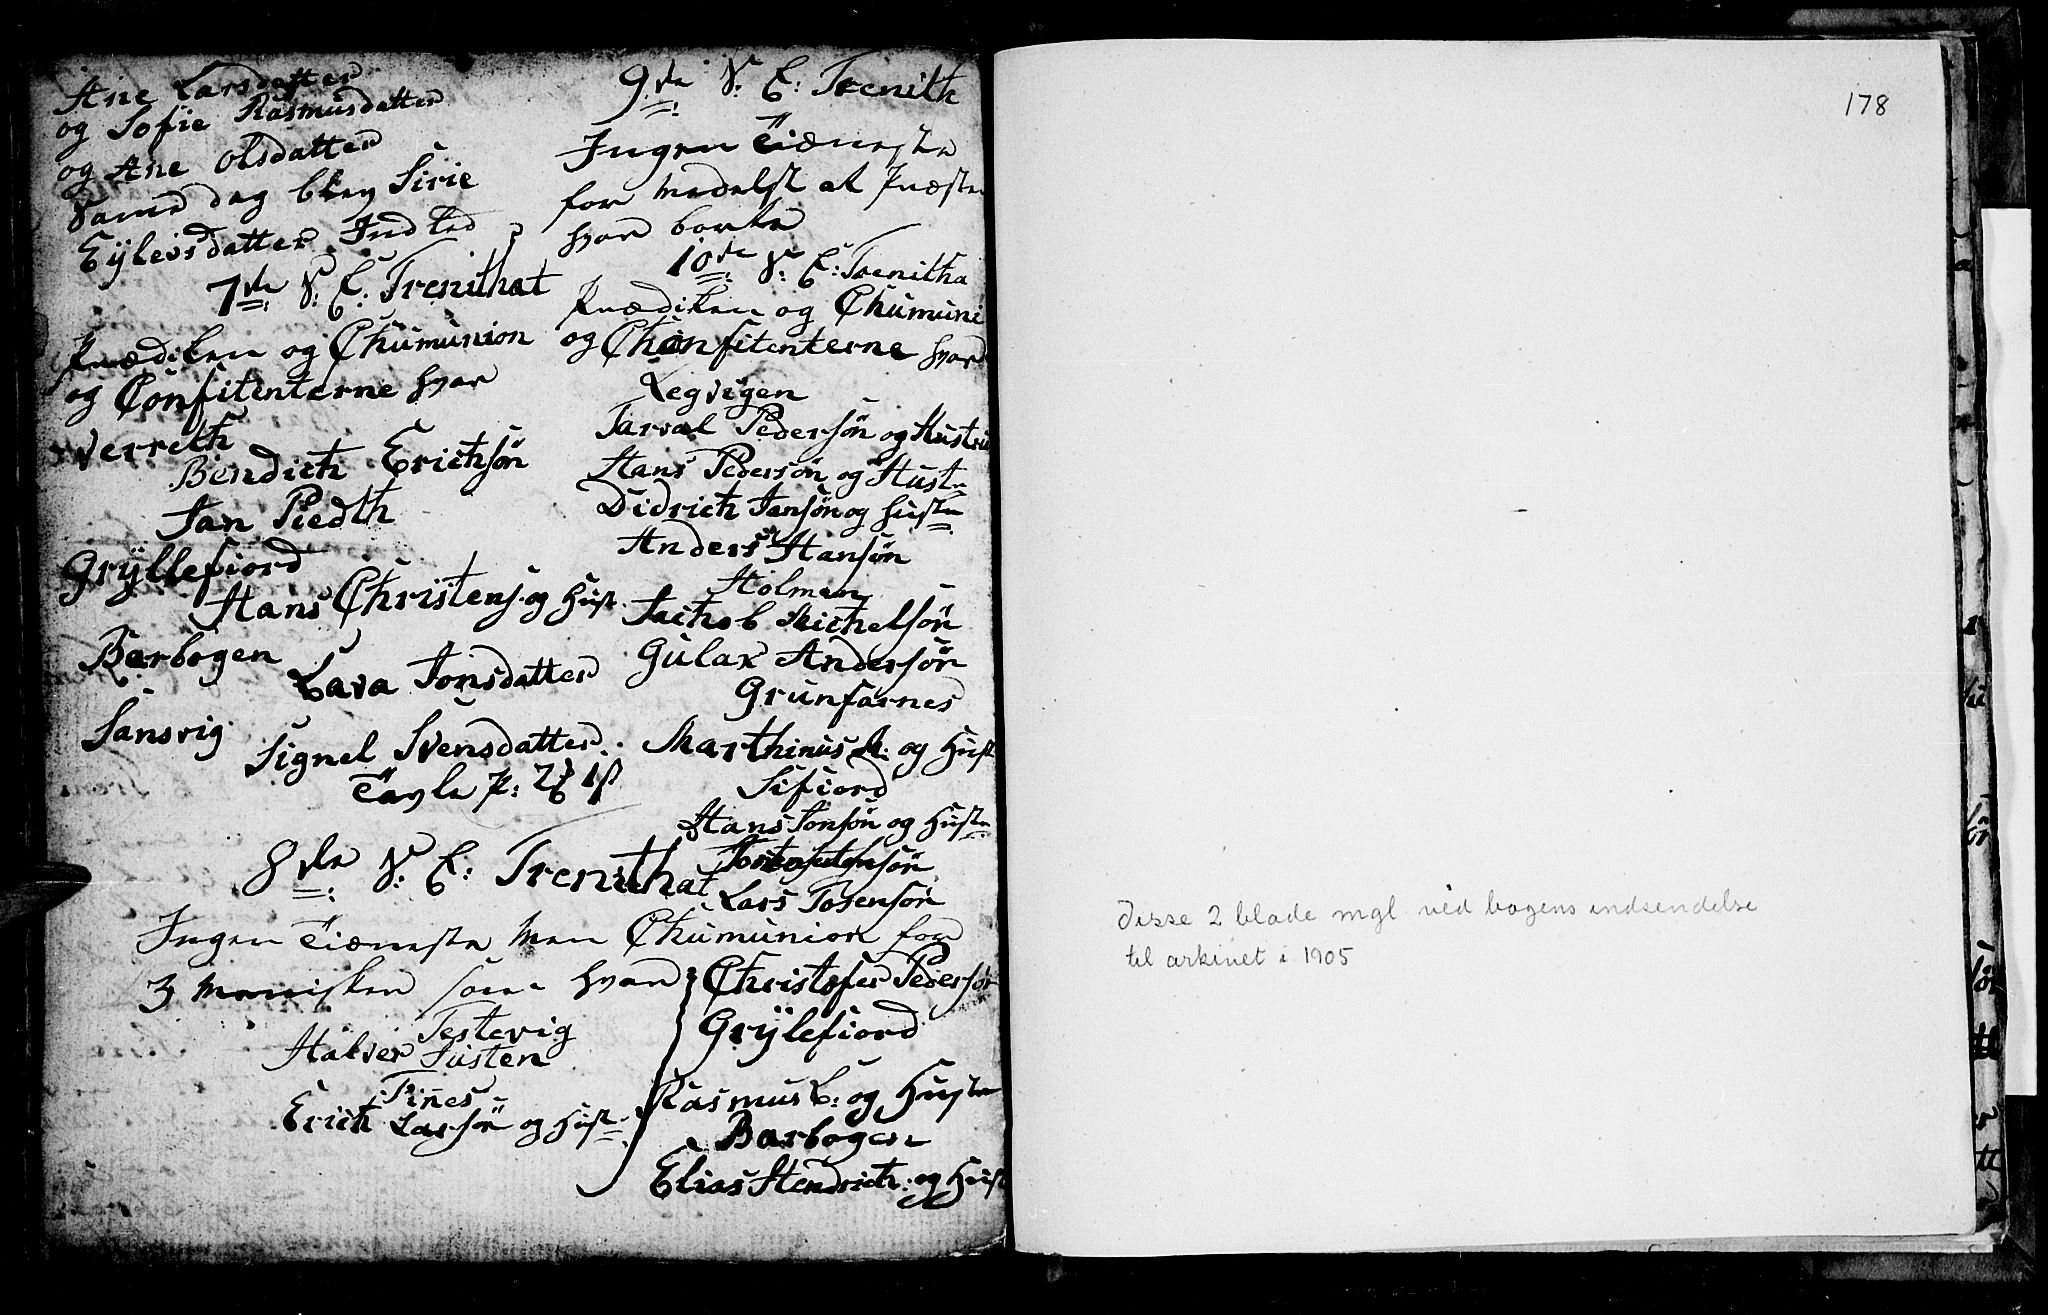 Ane Larsdatter
og Sofie Rasmusdatter
og Ane Olsdatter
Samd dag blev Sirie
Eylevsdatter Indled
7de S: E: Trenithat
Prædiken og Chumunion
og Confitenterne hvar
Verreth
Bendicth Ericthsøn
Jan Piedth
Gryllefiord
Hans Christens. og Hust.
Barbogen
Lava Jonsdatter
Sansvig
Signel Svensdatter
Tavle P: 2 1
8de S: E: Trenithat
Ingen Tiæneste Men Chumunion for
3 Menisker som hvar
Testevig
Halver Justen
Finnes
Ericth Larsøn og Hust
9de S: E: Trenith
Ingen Tiæneste
for Medelst at Præsten
hvar borte
10de S: E: Trenitha
Prædiken og Chumuni
og Chonfitenterne hvar
Legvigen
Tarval Pedersøn og Hustru
Hans Pedersøn og Hust
Didricth Jansøn og Hust
Anders Hansøn
Holmen
Jacthob Micthelsøn
Gulax Andersøn
Grunfarnes
Marthinus M: og Hust
Sifiord
Hans Jonsøn og Hust
Lars Tosensøn
Christofer Pedersøn
Grylefiord
Rasmus L: og Hust
Barbogen
Elias Hendricth: og Hust
178
disse 2 blade mgl ved bogens indsendelse
til arkivet i 1905